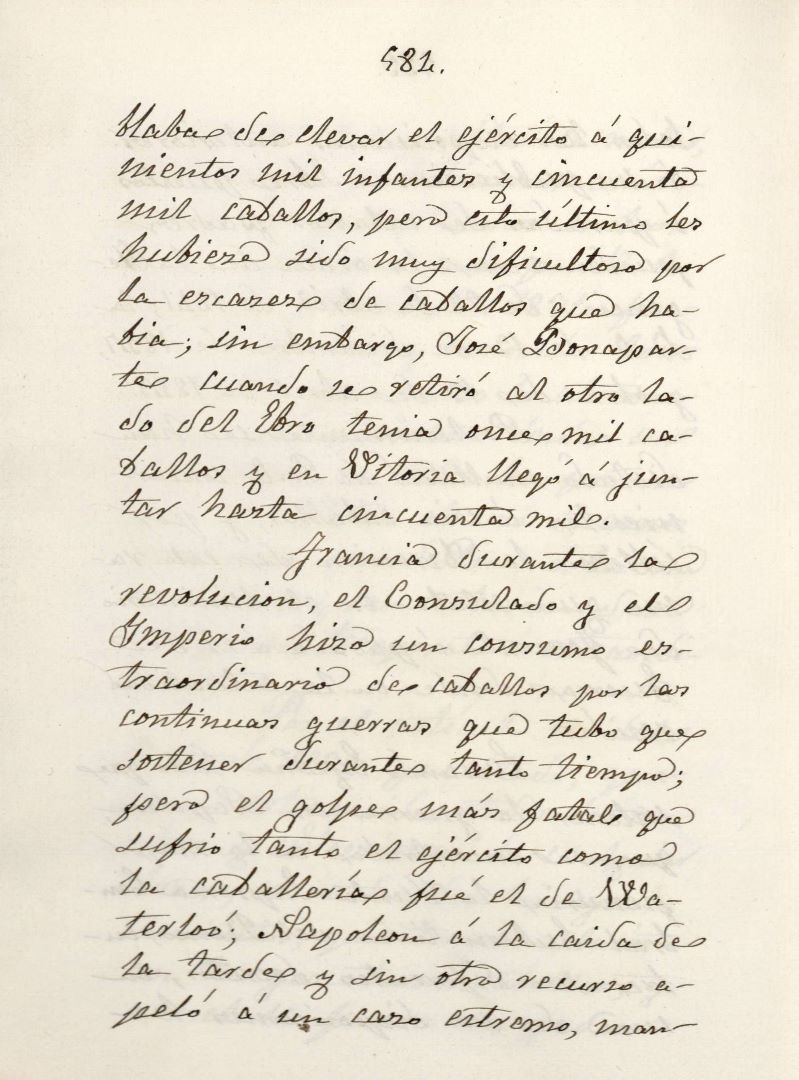 584.
blaba de elevar el ejército á qui-
nientos mil infantes y cincuenta
mil caballos, pero esto último les
hubiera sido muy dificultoso por
la escases de caballos que ha-
bia; sin embargo, José Bonapar-
te cuando se retiró al otro la-
do del Ebro tenia once mil ca-
ballos y en Vitoria llegó á jun-
tar hasta cincuenta mil.
Francia durante la
revolucion, el Consulado y el
Imperio hizo un consumo es-
traordinario de caballos por las
continuas guerras que tubo que
sostener durante tanto tiempo;
pero el golpe más fatal que
sufrio tanto el ejército como
la caballería fué el de Wa-
terloó; Napoleon á la caida de
la tarde y sin otro recurso a-
peló á un caso estremo, man-